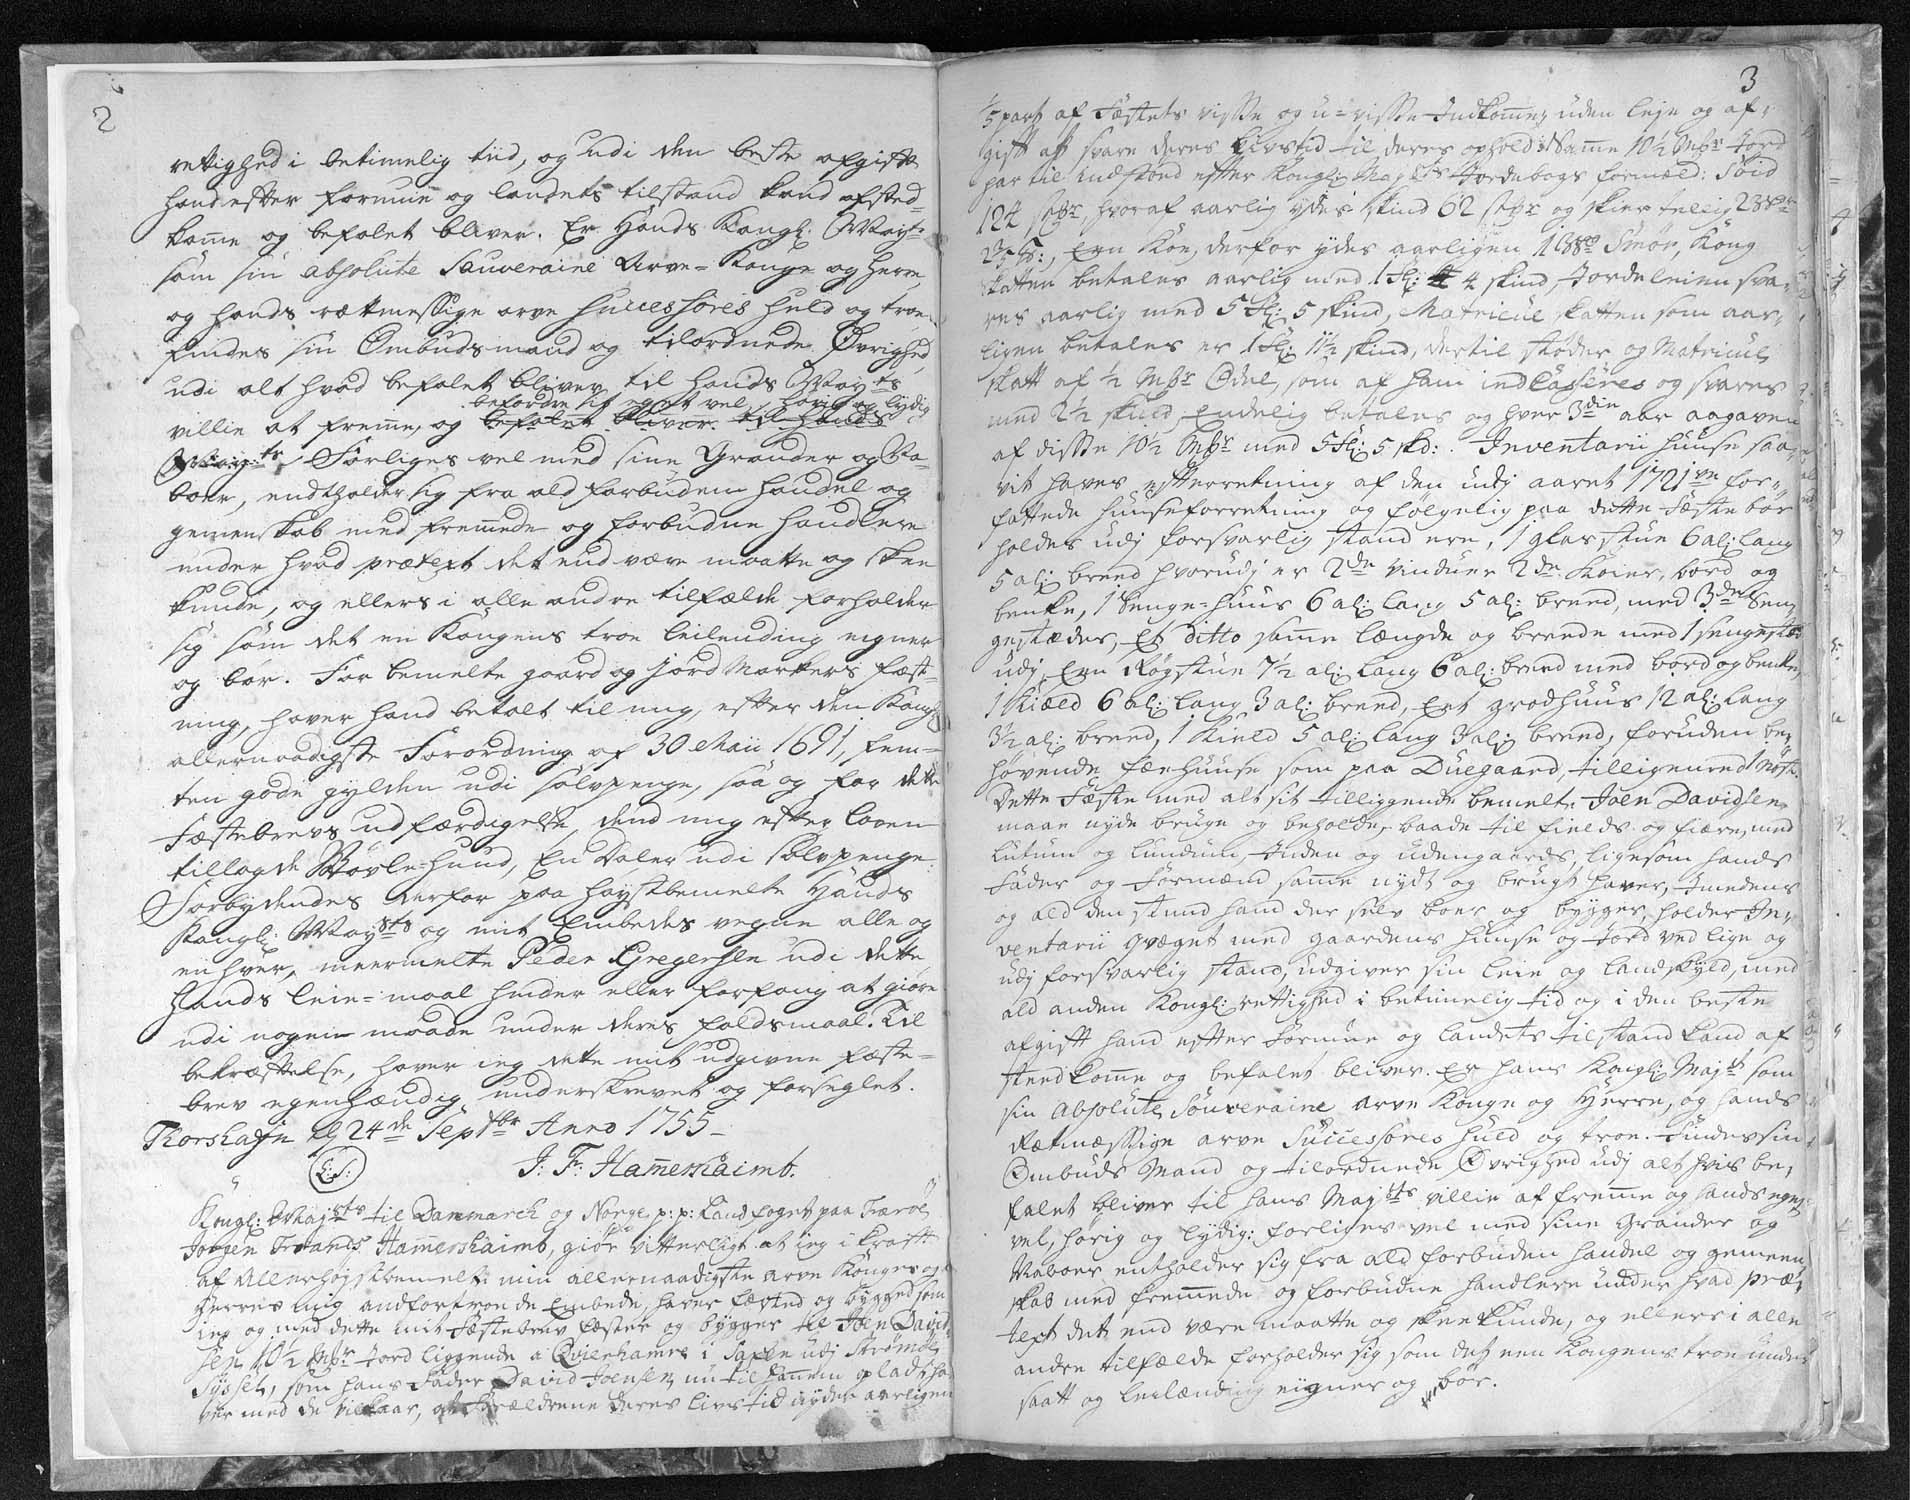 2
rettighed i betimelig tiid, og udi den beste afgifte
hand efter formue og landets tilstand kand afsted-
komme og befalet bliver. Er Hands Kongl. Mayts
som sin absolute Sauveraine Arve-Konge og Herre,
og hands rætmessige arve Successores huld og troe,
findes sin Ombudsmand og tilordnede Øvrighed
udi alt hvad befalet bliver til hands Mayts
befordre sit egnet vel, hørig og lydig
villie at fremme, og befalet bliver til hands
Mayts, Forliges vel med sine Grander og Na-
boer, endtholder sig fra ald forbuden handel og
gemenskab med fremmede og forbudne handlere
under hvad prætext det end være maatte og skee
kunde, og ellers i alle andre tilfælde forholder
sig som det en Kongens troe leilending eigner
og bør. For bemelte gaard og jord Markers fæst-
ning, haver hand betalt til mig, efter den Kongl:
allernaadigste Forordning af 30 Maii 1691, fem-
ten gode gylden udi sølvpenge, saa og for dette
Fæstebrevs udfærdigelse, dend mig efter loven
tillagde Bøvle-hund, En Daler udi sølvpenge.
Forbydendes derfor paa høystbemelte Hands
Kongl: Maysts og mit Embedes vegne alle og
en hver, meermelte Peder Gregersen udi dette
hands leie-maal hinder eller forfang at giøre
udi nogen maade under deres faldsmaal. Til
bekræftelse, haver ieg dette mit udgivne fæste-
brev egenhændig underskrevet og forseglet.
Thorshafn d 24de Septbr Anno 1755 -
L:S: J: F: Hamershaimb.
Kongl: Maysts til Danmarck og Norge p: p: Landfoget paa Færøe,
Jørgen Frands Hamershaimb, giør vitterligt at ieg i kraft
af Allerhøjstbemelte min allernaadigste arve Konges og
Herres mig andfortroede Embede, haver fæsted og bygged som
ieg og med dette mit Fæstebrev fæster og bygger til Joen David-
sen 10½ Mkr Jord liggende a Qvienhamre i Saxen udj Strømøe
Syssel, som hans Fader David Joensen nu til hannem opladt ha-
ver med de vilkaar, at Forældrene deres livs tid nyder aarligen
3
1/5 part af Fæstets visse og u-visse Indkomme uden leje og af-
gift att svare deres livstid til deres ophold. Samme 10½ Mkr Jord
har til indstand efter Kongl: Mayts Jordebogs formeld: Soid
124 stkr, hvoraf aarlig ydes skind 62 stkr og skier tellig 23
, Een Koe, derfor ydes aarligen 1 Smør, Kong
skatten betales aarlig med 1 fl: 4 skind, Jordeleien sva-
res aarlig med 5 fl: 5 skind, Matricul skatten som aar-
ligen betales er 1 fl: 11½ skind, dertil støder og Matricul
skatt af ½ Mkr Odel, som af ham indcasseres og svares
med 2½ skind, Endelig betales og hver 3die aar aagaven
af disse 10½ Mkr med 5 fl: 5 skd: . Inventarii huuse saa,
vit haves efterretning af den udj aaret 1721ve for-
fattede huuseforretning og følgelig paa dette Fæste bør
holdes udj forsvarlig stand ere, 1 glarstue 6 al: lang
5 al: breed hvorudj er 2de vinduer 2de Køier, bord og
benke, 1 Senge-huus 6 al: lang 5 al: breed, med 3de Sen-
gestæder, Et ditto samme længde og brede med 1 sengestæ:
udj, Een Røgstue 7½ al: lang 6 al: breed med bord og benke,
1 Kiæld 6 al: lang 3 al: breed, Eet grodhuus 12 al: lang
3½ al: breed, 1 Kield 5 al: lang 3 al: breed, foruden be-
høvende fæehuuse som paa Duegaard, tilligemed 1 Nøst.
Dette Fæste med alt sit tilliggende bemelte Joen Davidsen
maae nyde bruge og beholde, baade til fields og fiære, med
Lutum og Lundum, Inden og udengaards, ligesom hands
Fader og Formænd samme nydt og brugt haver, Imedens
og ald den stund hand der selv boer og bygger, holder In-
ventarii qvæget med gaardens huuse og Jord ved lige og
udj forsvarlig stand, udgiver sin leie og landskyld, med
ald anden Kongl: rettighed i betimelig tid og i den beste
afgift hand efter Formue og landets tilstand kand af
steedkomme og befalet bliver. Er hans Kongl: Majt som
sin absolute Souveraine arve Konge og Herre, og hands
Rætmæssige arve Successores huld og troe. Findes sin
Ombuds Mand og tilordnede Øvrighed udj alt hvis be-
falet bliver til hans Majts villie af fremme og hands egnet
vel, hørig og lydig: forliges vel med sine Grander og
Naboer entholder sig fra ald forbuden handel og gemeen
skab med fremmede og forbudne handlere under hvad præ-
text det end være maatte og skee kunde, og ellers i alle
andre tilfælde forholder sig som det een Kongens troe under
saatt og leilænding eigner og bør.